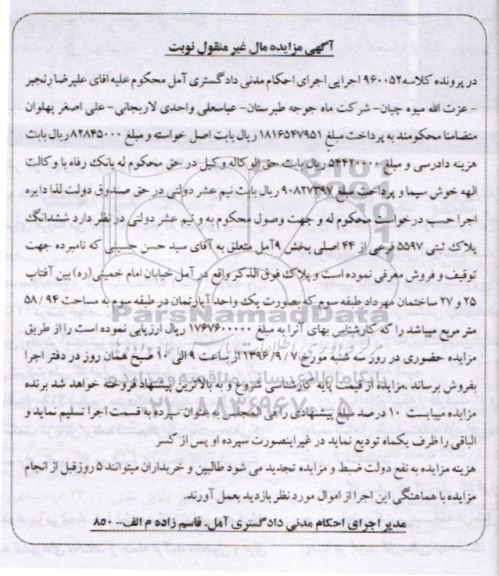 آگهی مزایده مال غیر منقول نوبت
در پرونده کلاسه ۹۶۰۰۵۲ اجرایی اجرای احکام مدنی دادگستری آمل محکوم علیه اقای علیرضا رنجبر
- عزت الله میوه چیان- شرکت ماه جوجه طبرستان- عباسعلی واحدی لاریجانی- علی اصغر پهلوان
متضامنا محکومند به پرداخت مبلغ ۱۸۱۶۵۴۷۹۵۱ ریال بابت اصل خواسته و مبلغ ۸۲۸۴۵۰۰۰ ریال بابت
هزینه دادرسی و مبلغ ۵۴۴۲۰۰۰۰ ریال بابت حق الوکاله وکیل در حق محکوم له بانک رفاه با وکالت
الهه خوش سیما و پرداخت مبلغ ۹۰۸۲۷۳۹۷ ریال بابت نیم عشر دولتی در حق صندوق دولت لذا دایره
اجرا حسب درخواست محکوم له و جهت وصول محکوم به و نیم عشر دولتی در نظر دارد ششدانگ
پلاک ثبتی ۵۵۹۷ فرعی از ۴۴ اصلی بخش ۹ آمل متعلق به آقای سید حسن حسینی که نامبرده جهت
توقیف و فروش معرفی نموده است و پلاک فوق الذکر واقع در آمل خیابان امام خمینی(ره) بین آفتاب
۲۵ و ۲۷ ساختمان مهرداد طبقه سوم که بصورت یک واحد آپارتمان در طبقه سوم به مساحت ۵۸/۹۴
متر مربع میباشد را که کارشناس بهای آنرا به مبلغ ۱۷۶۷۶۰۰۰۰۰ ریال ارزیابی نموده است را از طریق
مزایده حضوری در روز سه شنبه مورخ ۱۳۹۶/۹/۷ از ساعت ۹ الی ۱۰ صبح همان روز در دفتر اجرا
بفروش برساند .مزایده از قیمت پایه کارشناسی شروع و به بالاترین پیشنهاد فروخته خواهد شد برنده
مزایده میبایست ۱۰ درصد مبلغ پیشنهادی را فی المجلس به عنوان سپرده به قسمت اجرا تسلیم نماید و
الباقی را ظرف یکماه تودیع نماید در غیر اینصورت سپرده او پس از کسر
هزینه مزایده به نفع دولت ضبط و مزایده تجدید می شود طالبین و خریداران میتوانند ۵ روز قبل از انجام
مزایده با هماهنگی این اجرا از اموال مورد نظر بازدید بعمل آورند.
مدیر اجرای احکام مدنی دادگستری آمل. قاسم زاده م الف- ۸۵۰
ParsNamadData
۰۲۱-۸۸۳۴۹۶۷۰